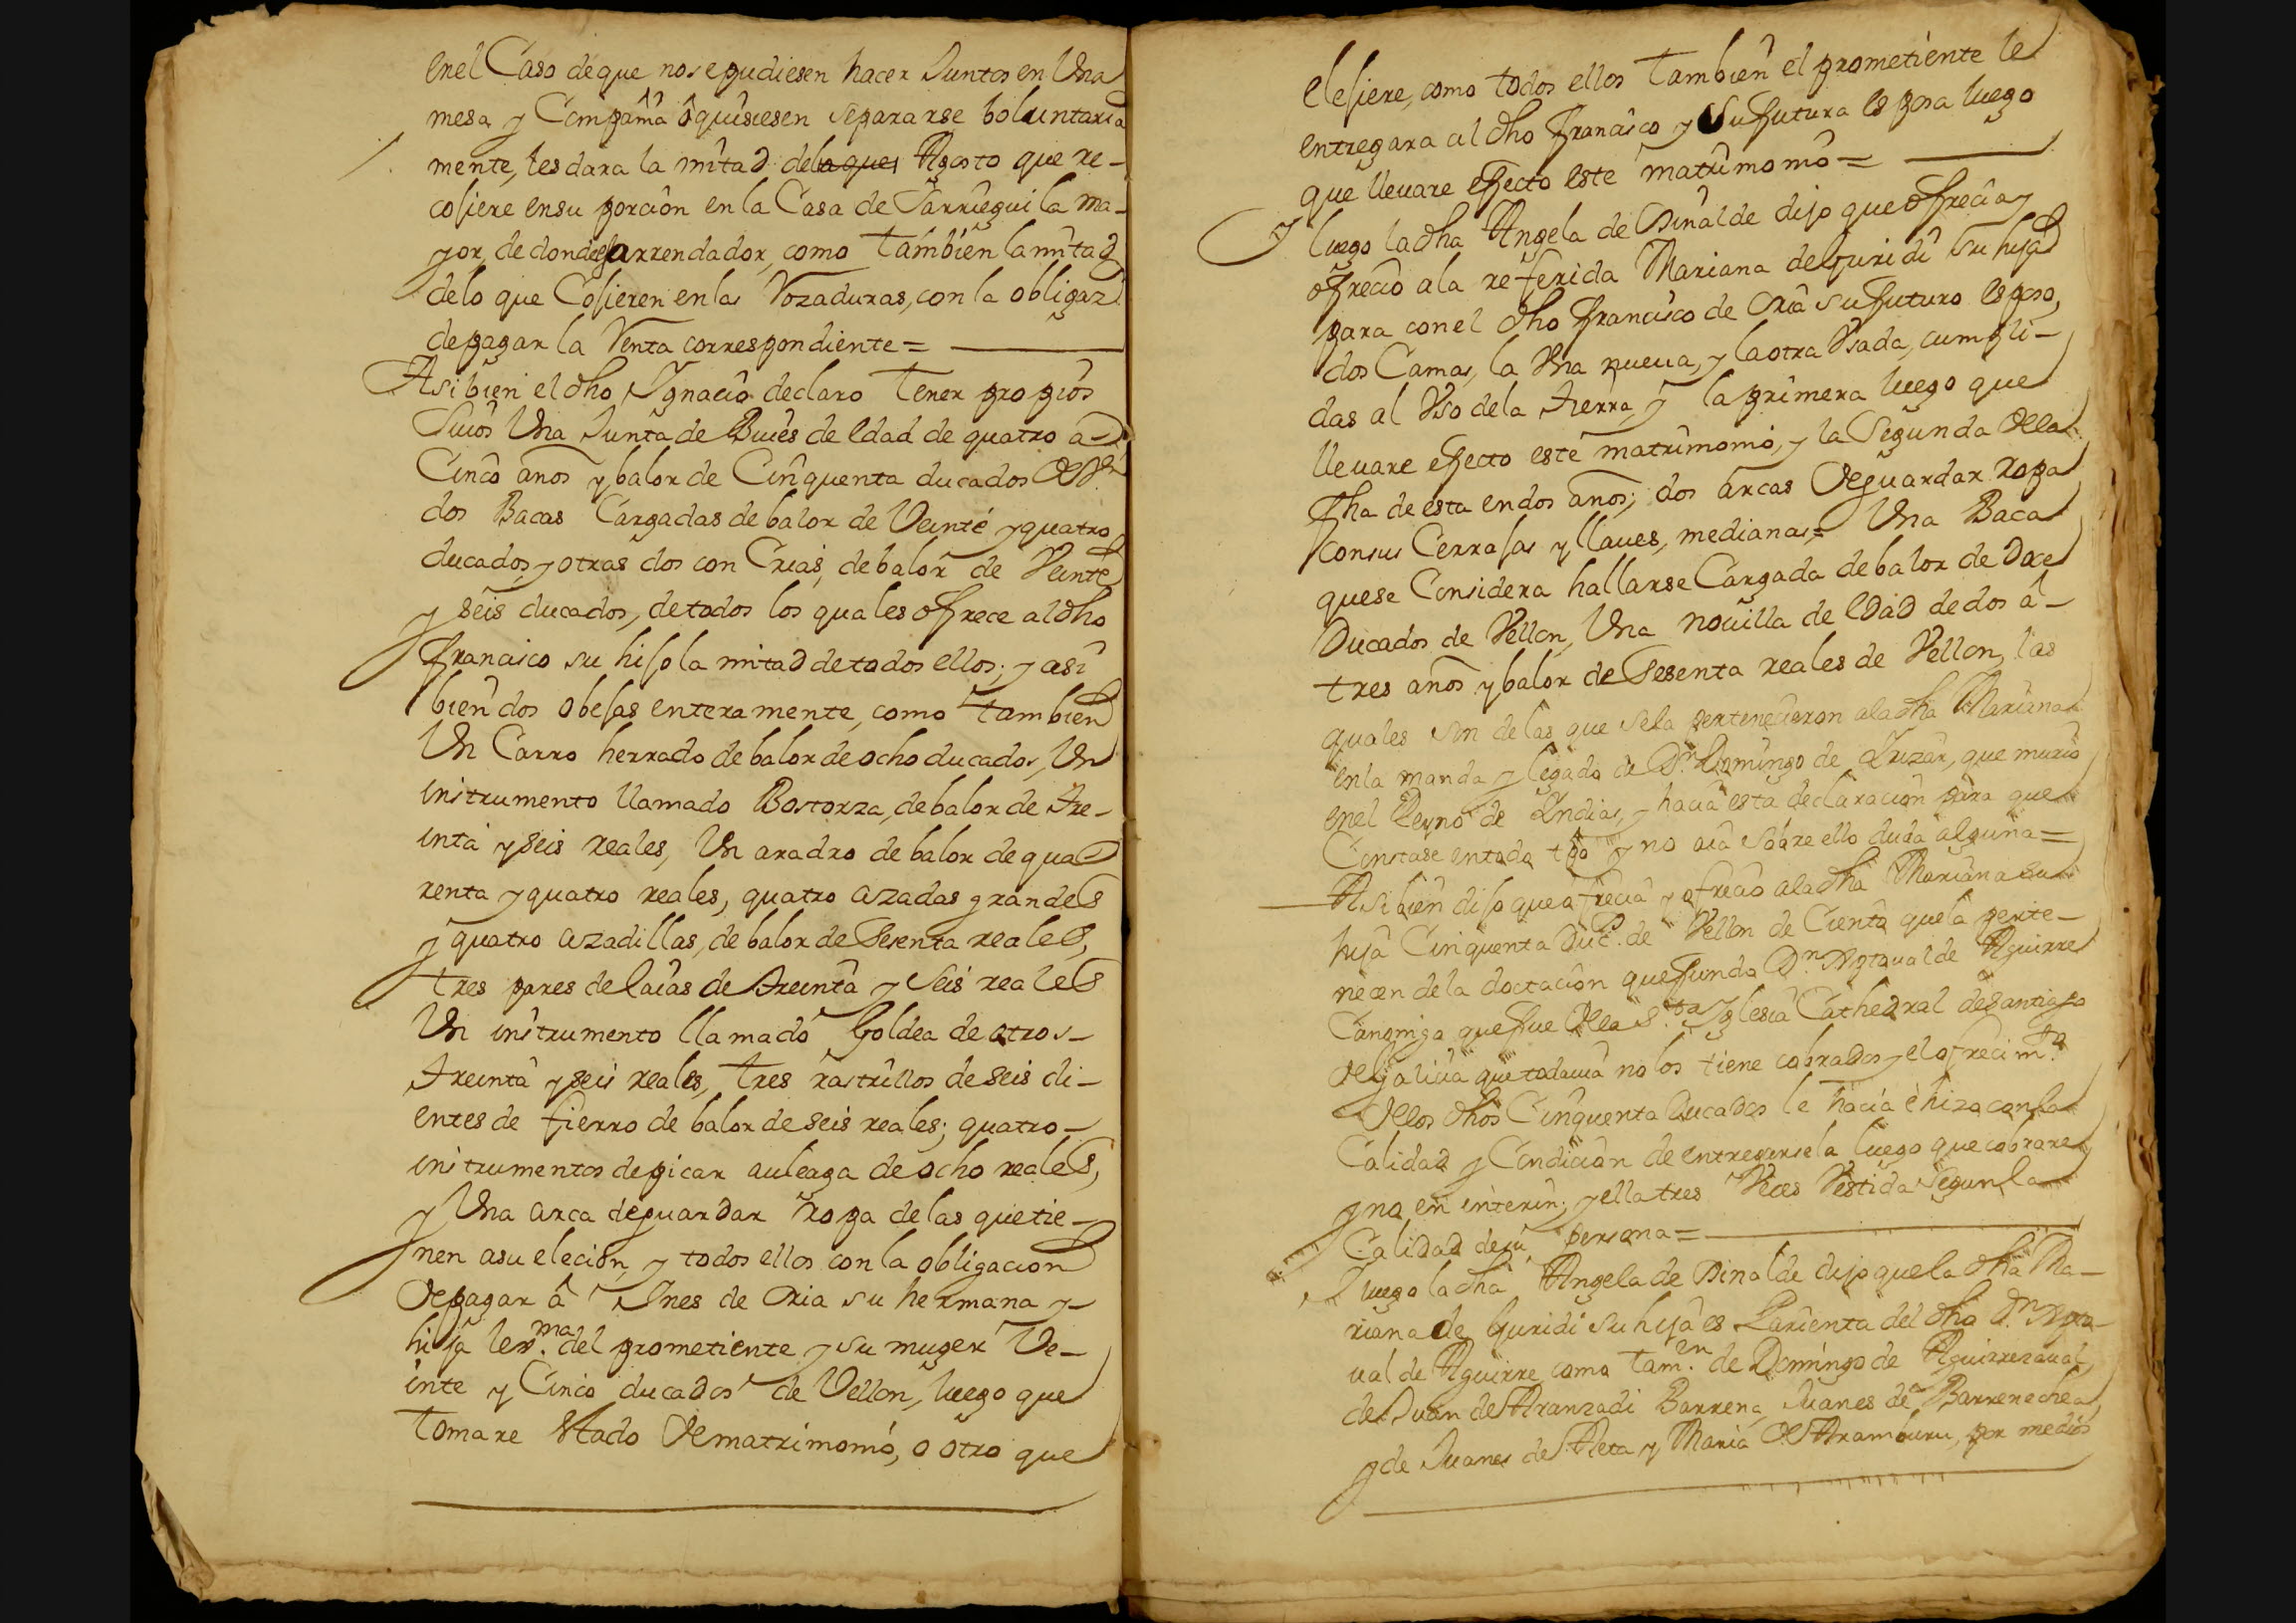 enel Caso deque nose pudiesen hacer Juntos en Una
mesa y Compañia ô quisiesen separarse boluntaria
mente, les dara la mitad dela que Agosto que re-
cosiere ensu porcion en la Casa de Jarriegui la ma-
yor, de donde es arrendador, como tambien la mitad
delo que Cojieren enlas Rozaduras, con la obligaz.
depagar la Renta correspondiente =
Asi bien el dho Ignacio declaro tener propios
Suios Una Junta de Bueis de Edad de quatro a
Cinco años y balor de Cinquenta ducados de Vn.
dos Bacas Cargadas de balor de Veinte y quatro
ducados, y otras dos con Crias, de balor de Veinte
y seis ducados, detodos los quales ofrece al dho
Francisco su hijo la mitad detodos ellos; y asi
bien dos obejas enteramente, como tambien
Un Carro herrado de balor de ocho ducados, Un
instrumento llamado Bostorza, de balor de tre-
inta y seis reales, Un aradro de balor de qua
renta y quatro reales, quatro azadas grandes
y quatro azadillas, de balor de Sesenta reales,
tres pares de laias de treinta y Seis reales
Un instrumento llamado Goldea de otros-
treinta y seis reales, tres rastrillos de seis di-
entes de fierro de balor de seis reales; quatro-
instrumentos depicar auleaga de ocho reales,
y Una arca deguardar ropa de las que tie-
nen asu elecion, y todos ellos con la obligacion
depagar â Ines de Oria su hermana y
hija lexma. del prometiente y su muger Ve-
inte y Cinco ducados de Vellon, luego que
tomare Estado de matrimonio, o otro que
elesiere, como todos ellos tambien el prometiente le
entregara al dho Francisco y Su futura esposa luego
que lleuare efecto este matrimonio =
Y luego la dha Angela de Vinalde dijo que ofrecia y
ofrecio ala referida Mariana de Guridi su hija
para con el dho Francisco de Oria su futuro esposo,
dos Camas, la Una nueua, y la otra Vsada, cumpli-
das al Vso dela tierra, y la primera luego que
lleuare efecto este matrimonio, y la Segunda dela
fha de esta en dos años; dos arcas de guardar ropa
consus Cerrajas y llaues, medianas = Una Baca
quese Considera hallarse Cargada de balor de Doce
Ducados de Vellon, Una nouilla de Edad de dos a-
tres años y balor de Sesenta reales de Vellon, las
quales son delas que sela pertenecieron ala dha Mariana
enla manda y legado de Dn. Domingo de Irizar, que murio
enel Reyno de Indias, y hacia esta declaracion para que
Constase en todo tpo y no aia sobre ello duda alguna =
Asi bien dijo que ofrecia y ofrecio ala dha Mariana su
hija Cinquenta Duc. de Vellon de Ciento que la perte-
necen dela doctacion que fundo Dn. Xptoual de Aguirre
Canoniga que fue dela Sta. Yglesia Cathedral deSantiago
de Galicia que todauia no los tiene cobrados y el ofrecimto.
delos dhos Cinquenta Ducados le hacia è hizo con la
Calidad y Condicion de entregarsela luego que cobrare
y no en interin; y ella tres Veces Vestida Segun la
Calidad desu persona =
Y luego la dha Angela de Vinalde dijo que la dha Ma-
riana de Guridi su hija es Parienta del dho Dn. Xpto-
ual de Aguirre como tamn. de Domingo de Aguirrezaual,
de Juan de Aranzadi Barrena, Juanes de Barrenechea,
y de Juanes de Aleta y Maria de Aramburu, por medio